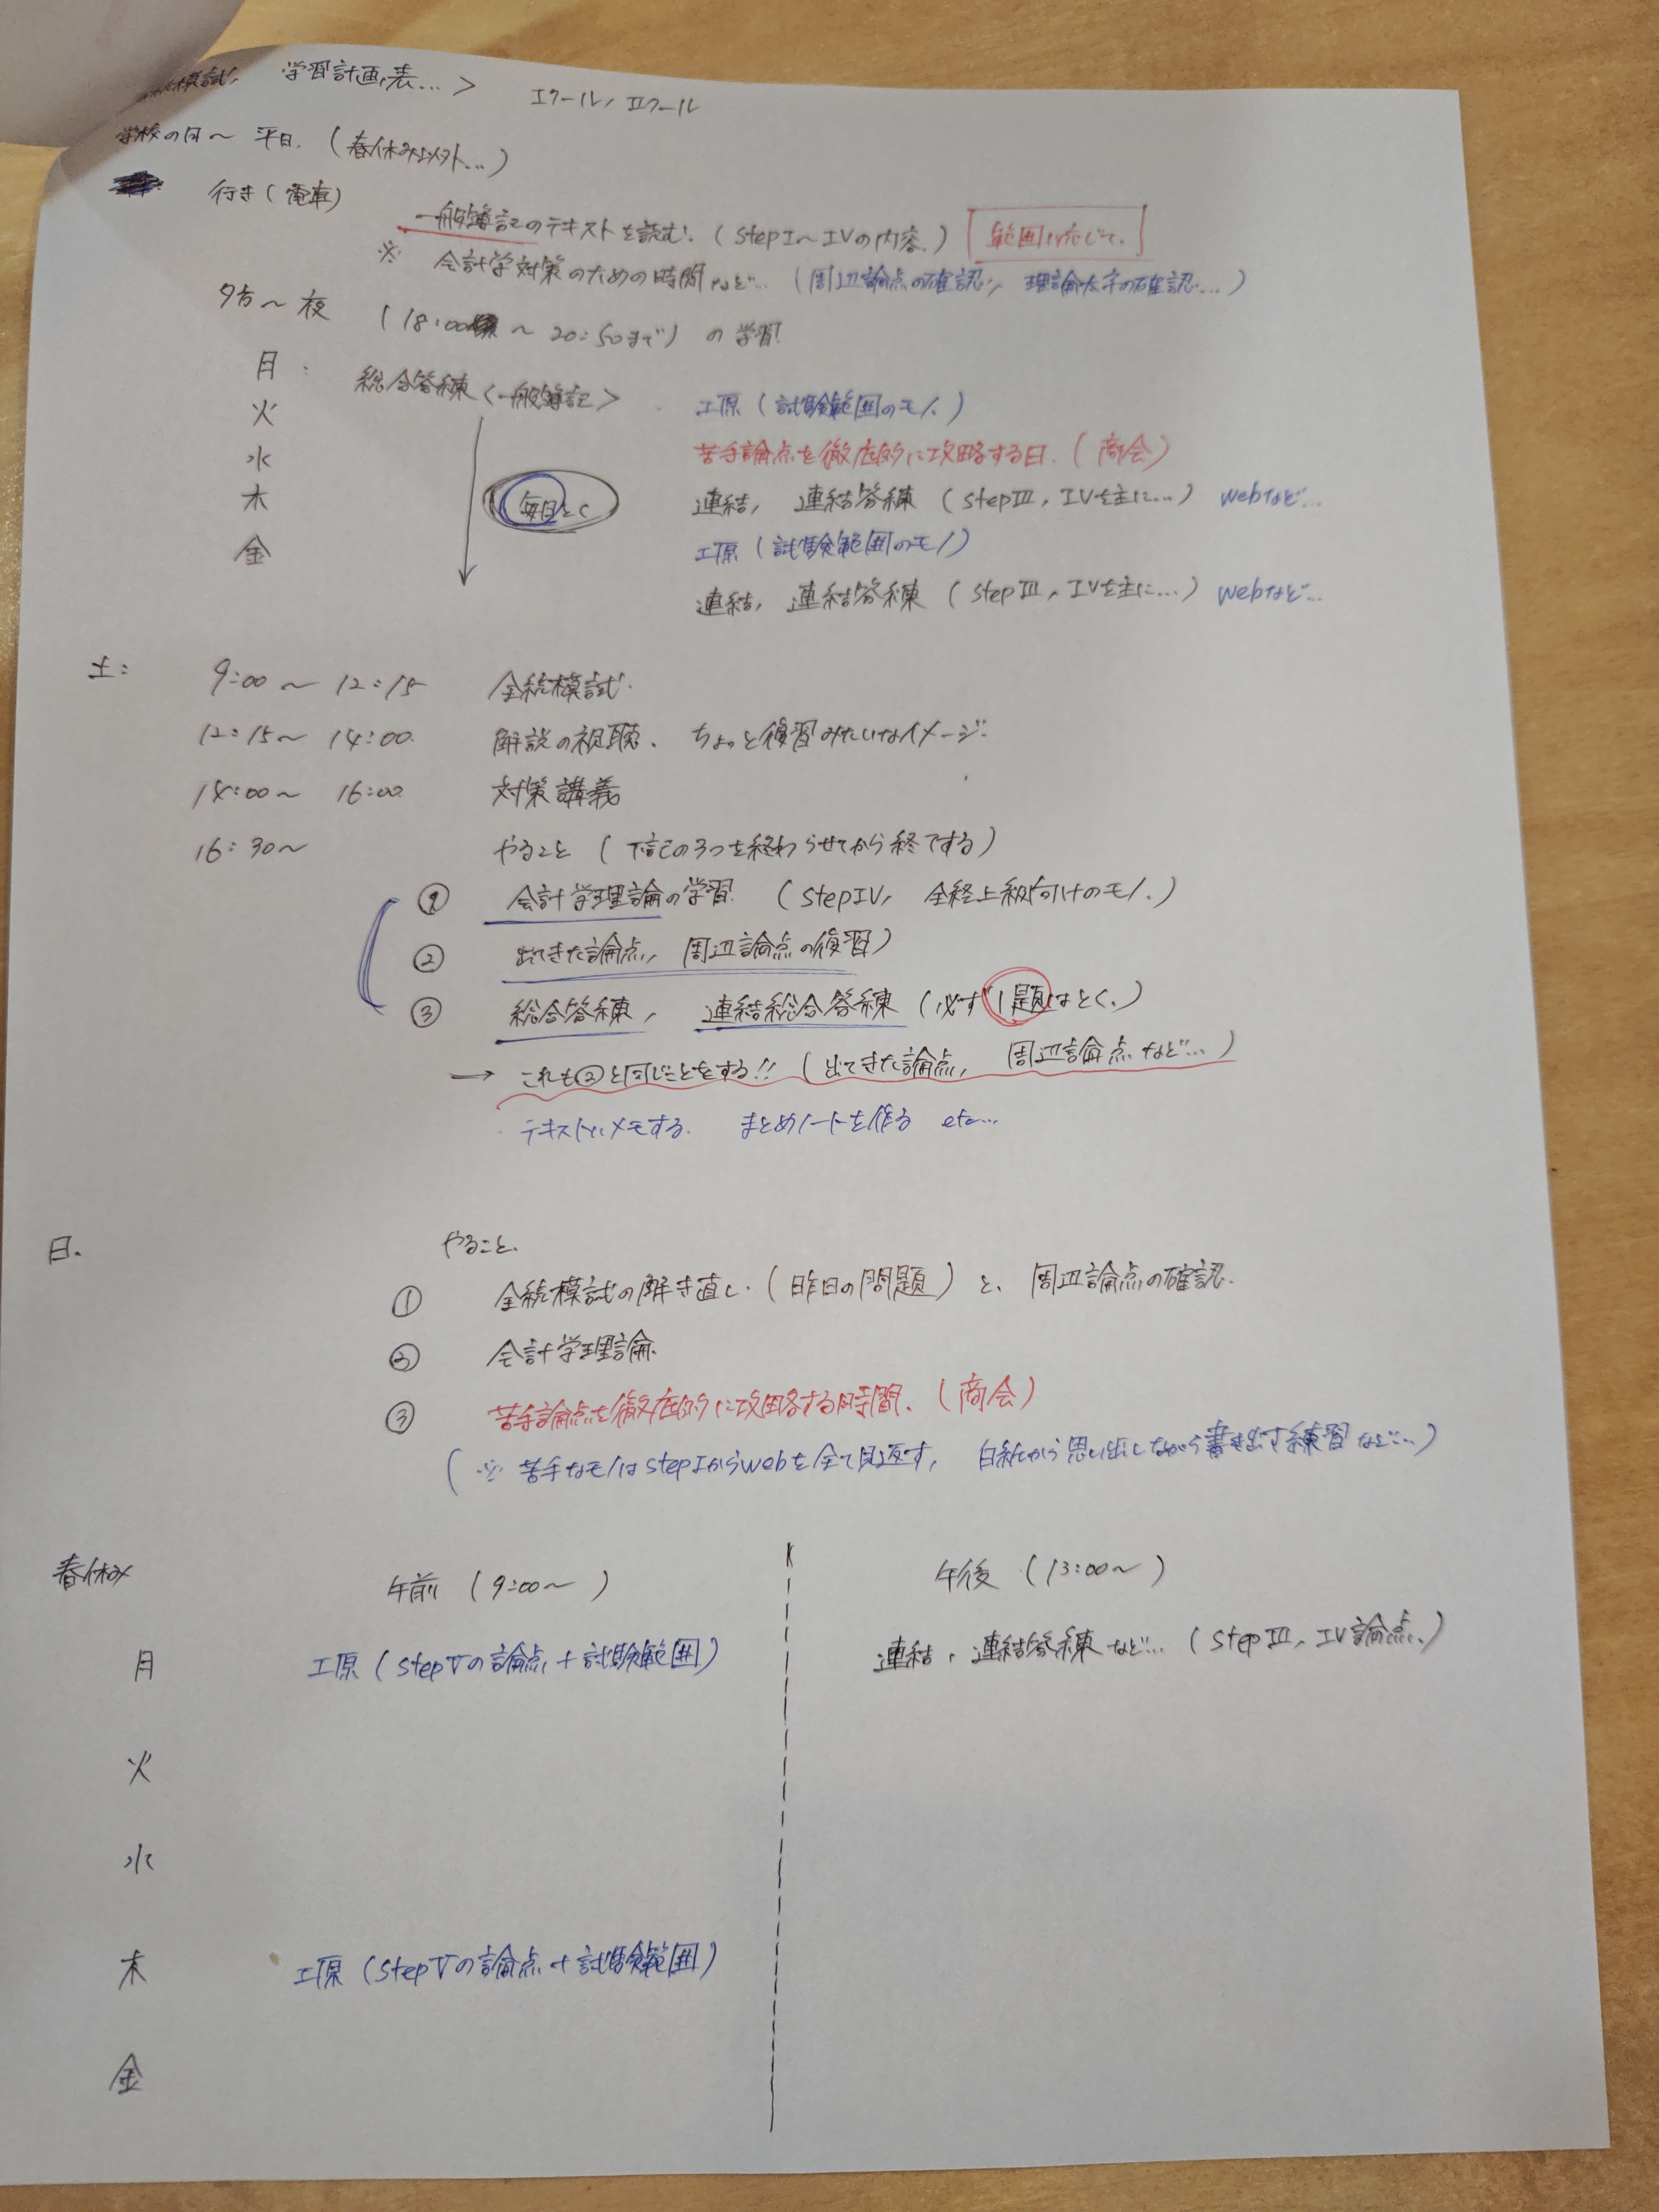 模試, 学習計画表…> Iクール, IIクール
学校の日〜 平日. (春休み以外…)
行き(電車)
一般簿記のテキストを読む. (Step I〜IVの内容.) [範囲に応じて.]
※ 会計学対策のための時間など… (周辺論点の確認, 理論太字の確認…)
夕方〜夜 (18:00頃〜20:50まで) の学習
月. 総合答練<一般簿記> 工原(試験範囲のモノ.)
火 苦手論点を徹底的に攻略する日. (商会)
水 連結, 連結答練 (Step III, IVを主に…) webなど…
木 毎日とく 工原(試験範囲のモノ)
金 連結, 連結答練 (Step III, IVを主に…) webなど…
土: 9:00〜12:15 全統模試.
12:15〜14:00. 解説の視聴. ちょっと復習みたいなイメージ.
14:00〜16:00. 対策講義
16:30〜 やること (下記の3つを終わらせてから終了する)
① 会計学理論の学習. (Step IV, 全経上級向けのモノ.)
② 出てきた論点, 周辺論点の復習)
③ 総合答練, 連結総合答練 (必ず1題はとく.)
→ これも②と同じことをする!! (出てきた論点, 周辺論点など…)
テキストにメモする. まとめノートを作る etc…
日. やること.
① 全統模試の解き直し.(昨日の問題) と, 周辺論点の確認.
② 会計学理論.
③ 苦手論点を徹底的に攻略する時間. (商会)
(※ 苦手なモノはStep Iからwebを全て見返す, 白紙から思い出しながら書き出す練習など…)
春休み 午前 (9:00〜 ) 午後 (13:00〜 )
月 工原(Step Vの論点+試験範囲) 連結, 連結答練など… (Step III, IV論点.)
火
水
木 工原(Step Vの論点+試験範囲)
金